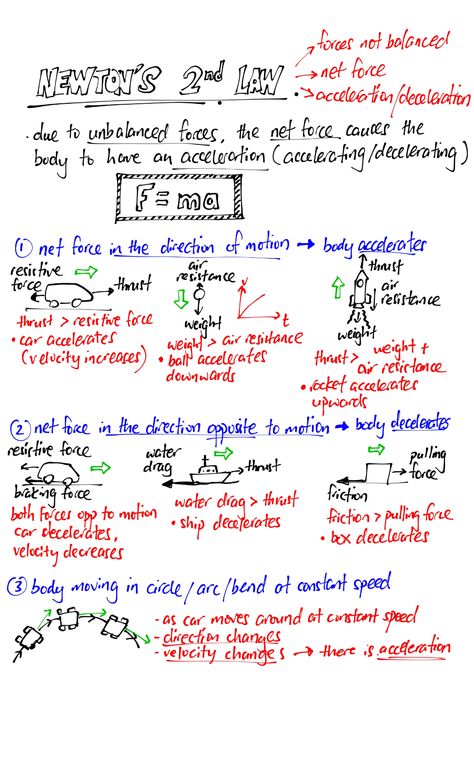 NEWTON'S 2nd LAW
→ forces not balanced
→ net force
→ acceleration/deceleration
· due to unbalanced forces, the net force causes the
body to have an acceleration (accelerating/decelerating)
F = ma
① net force in the direction of motion → body accelerates
resistive
force
thrust
thrust > resistive force
• car accelerates
(velocity increases)
air
resistance
weight
v
t
weight > air resistance
• ball accelerates
downwards
thrust
air
resistance
weight
thrust > weight +
air resistance
• rocket accelerates
upwards
② net force in the direction opposite to motion → body decelerates
resistive force
braking force
both forces opp to motion
car decelerates,
velocity decreases
water
drag
thrust
water drag > thrust
• ship decelerates
pulling
force
friction
friction > pulling force
• box decelerates
③ body moving in circle/arc/bend at constant speed
- as car moves around at constant speed
- direction changes
- velocity changes → there is acceleration